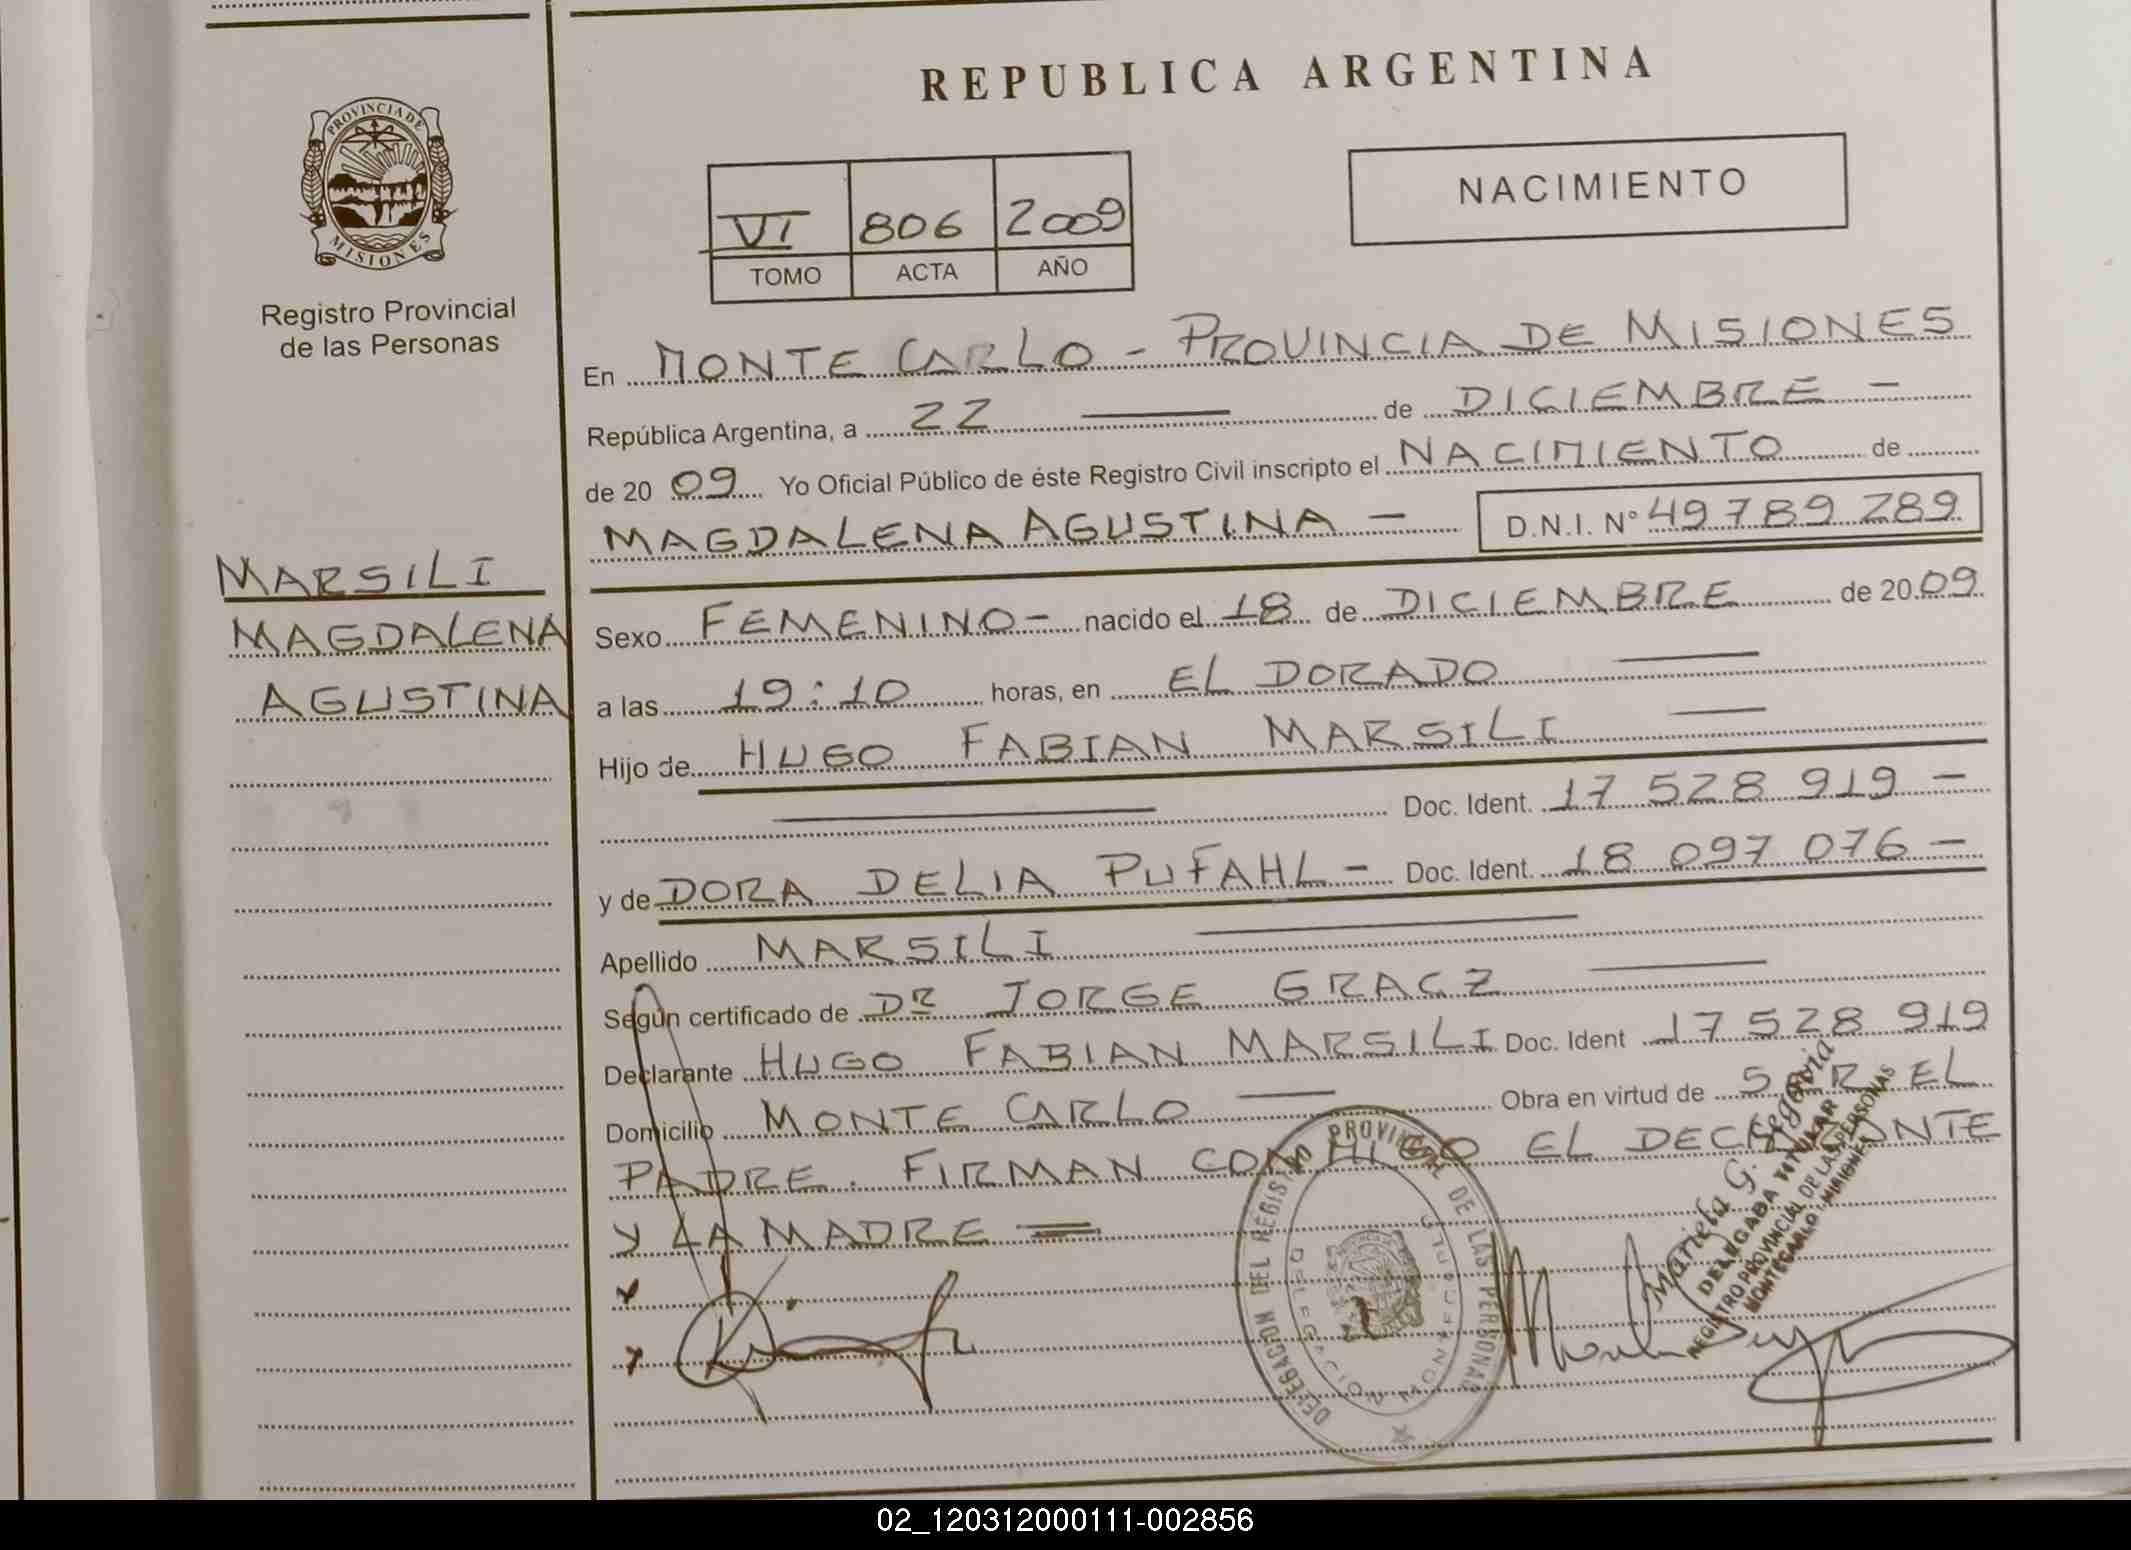 REPUBLICA ARGENTINA
PROVINCIA DE
MISIONES
Registro Provincial
de las Personas
NACIMIENTO
VI 806 2009
TOMO ACTA AÑO
En MONTE CARLO - PROVINCIA DE MISIONES
República Argentina, a 22 — de DICIEMBRE -
de 20 09 Yo Oficial Público de éste Registro Civil inscripto el NACIMIENTO de
MAGDALENA AGUSTINA - D.N.I. N° 49 789 289
MARSILI
MAGDALENA
AGUSTINA
Sexo FEMENINO - nacido el 18 de DICIEMBRE de 20 09
a las 19:10 horas, en EL DORADO —
Hijo de HUGO FABIAN MARSILI —
— Doc. Ident. 17 528 919 -
y de DORA DELIA PUFAHL - Doc. Ident. 18 097 076 -
Apellido MARSILI —
Según certificado de DR JORGE GRACZ —
Declarante HUGO FABIAN MARSILI Doc. Ident 17 528 919
Domicilio MONTE CARLO — Obra en virtud de SER EL
PADRE. FIRMAN CONMIGO EL DECLARANTE
Y LA MADRE =
DELEGACION DEL REGISTRO PROVINCIAL DE LAS PERSONAS
Mariela G. Segovia
DELEGADA TITULAR
REGISTRO PROVINCIAL DE LAS PERSONAS
MONTECARLO - MISIONES
02_120312000111-002856